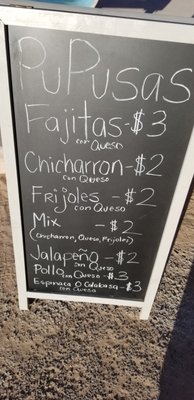 PuPusas
Fajitas-$3
con Queso
Chicharron-$2
con Queso
Frijoles -$2
con Queso
Mix -$2
(Chicharron, Queso, Frijoles)
Jalapeño -$2
con Queso
Pollo con Queso -$3
Espinaca O Calabasa -$3
con Queso